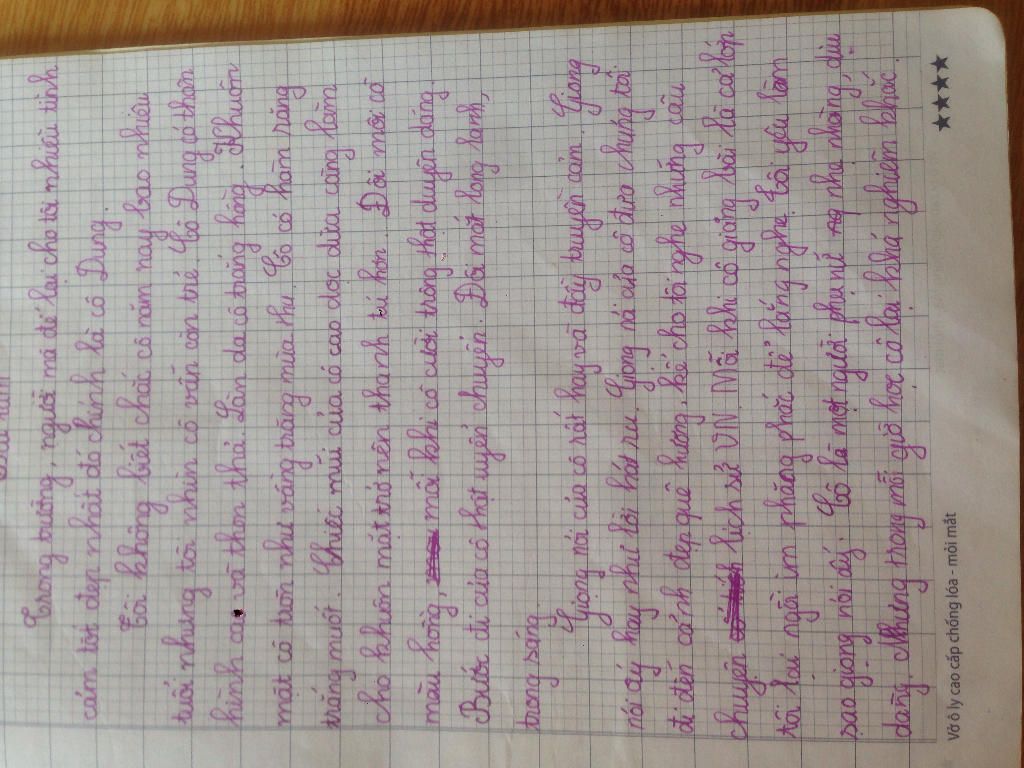 Trong trường, người mà để lại cho tôi nhiều tình
cảm tốt đẹp nhất đó chính là cô Dung.
Tôi không biết chắc cô năm nay bao nhiêu
tuổi nhưng tôi nhìn cô vẫn còn trẻ. Cô Dung có thân
hình cao và thon thả. Làn da cô trắng hồng. Khuôn
mặt cô tròn như vầng trăng mùa thu. Cô có hàm răng
trắng muốt. Chiếc mũi của cô cao dọc dừa càng làm
cho khuôn mặt trở nên thanh tú hơn. Đôi môi cô
màu hồng, mỗi khi cô cười trông thật duyên dáng.
Bước đi của cô thật uyển chuyển. Đôi mắt long lanh,
trong sáng.
Giọng nói của cô rất hay và đầy truyền cảm. Giọng
nói ấy hay như lời hát ru. Giọng nói của cô đưa chúng tôi
đi đến cảnh đẹp quê hương, kể cho tôi nghe những câu
chuyện lịch sử VN. Mỗi khi cô giảng bài là cả lớp
tôi lại ngồi im phăng phắc để lắng nghe. Tôi yêu làm
sao giọng nói ấy. Cô là một người phụ nữ nhẹ nhàng, dịu
dàng. Nhưng trong mỗi giờ học, cô lại khá nghiêm khắc.
Vở ô ly cao cấp chống lóa - mỏi mắt